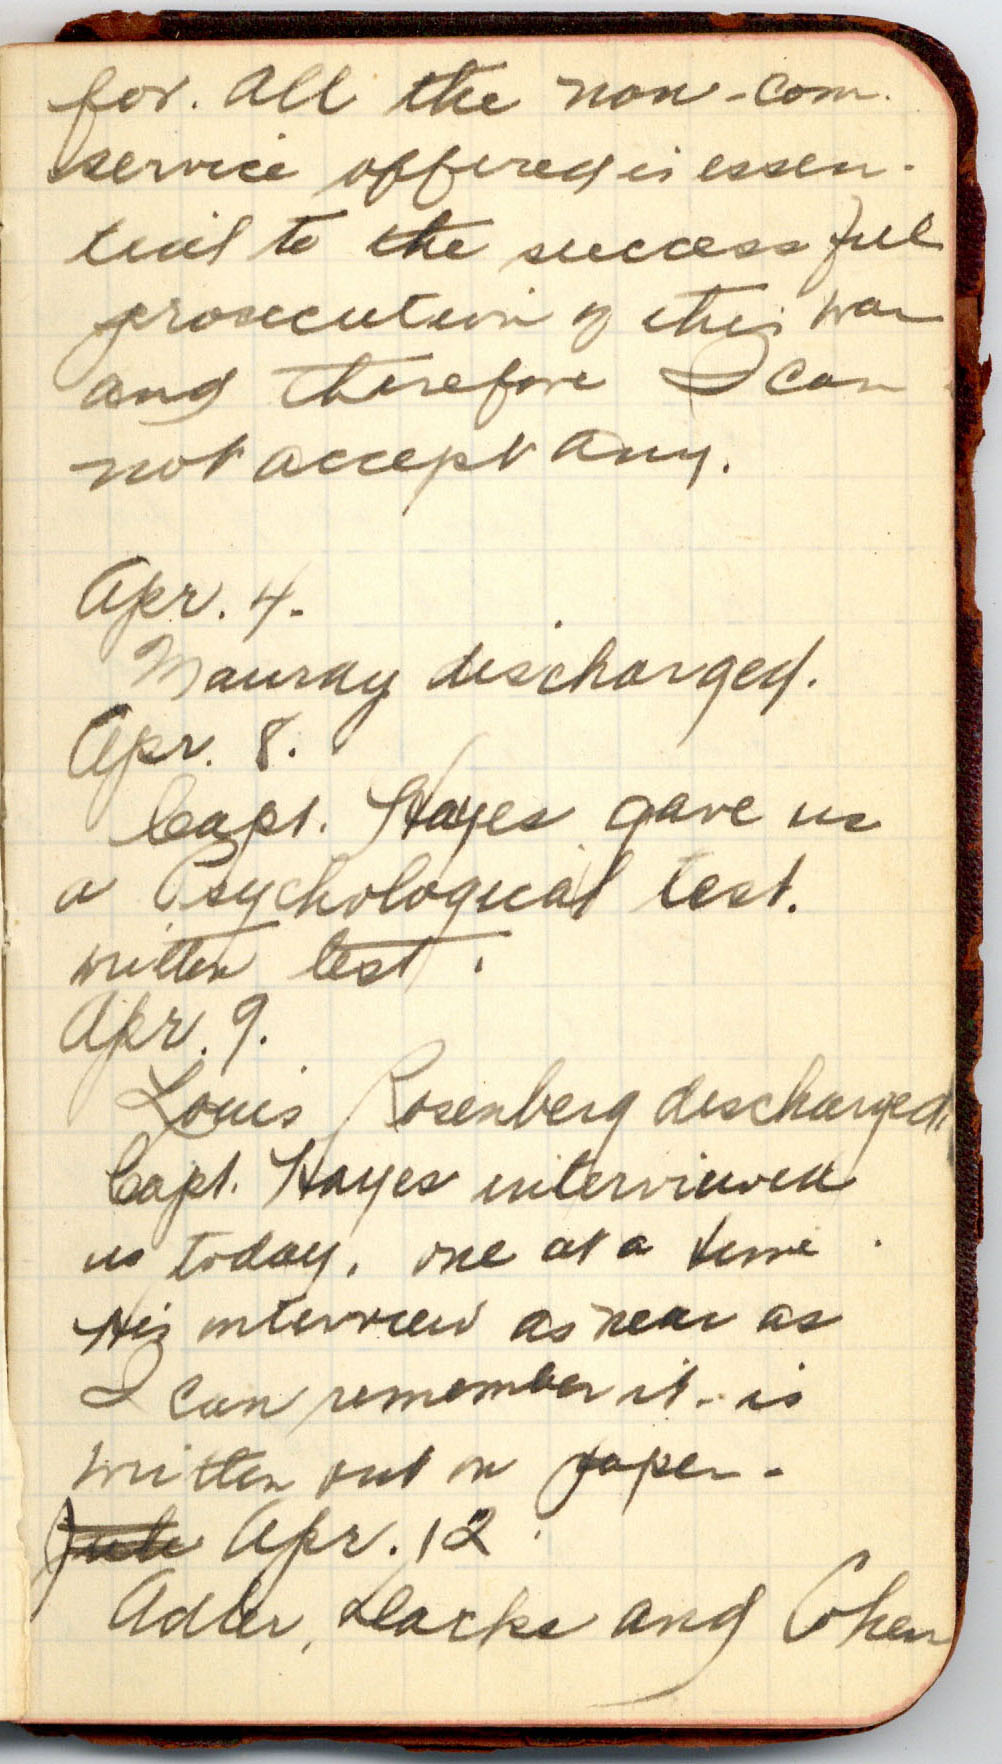 for. All the non-com.
service offered is essen-
tial to the successful
prosecution of this war
and therefore I can
not accept any.
Apr. 4.
Mauray discharged.
Apr. 8.
Capt. Hayes gave us
a Psychological test.
written test.
Apr. 9.
Louis Rosenberg discharged.
Capt. Hayes interviewed
us today, one at a time.
His interview as near as
I can remember it - is
written out on paper -
Apr. 12.
Adler, and Cohen